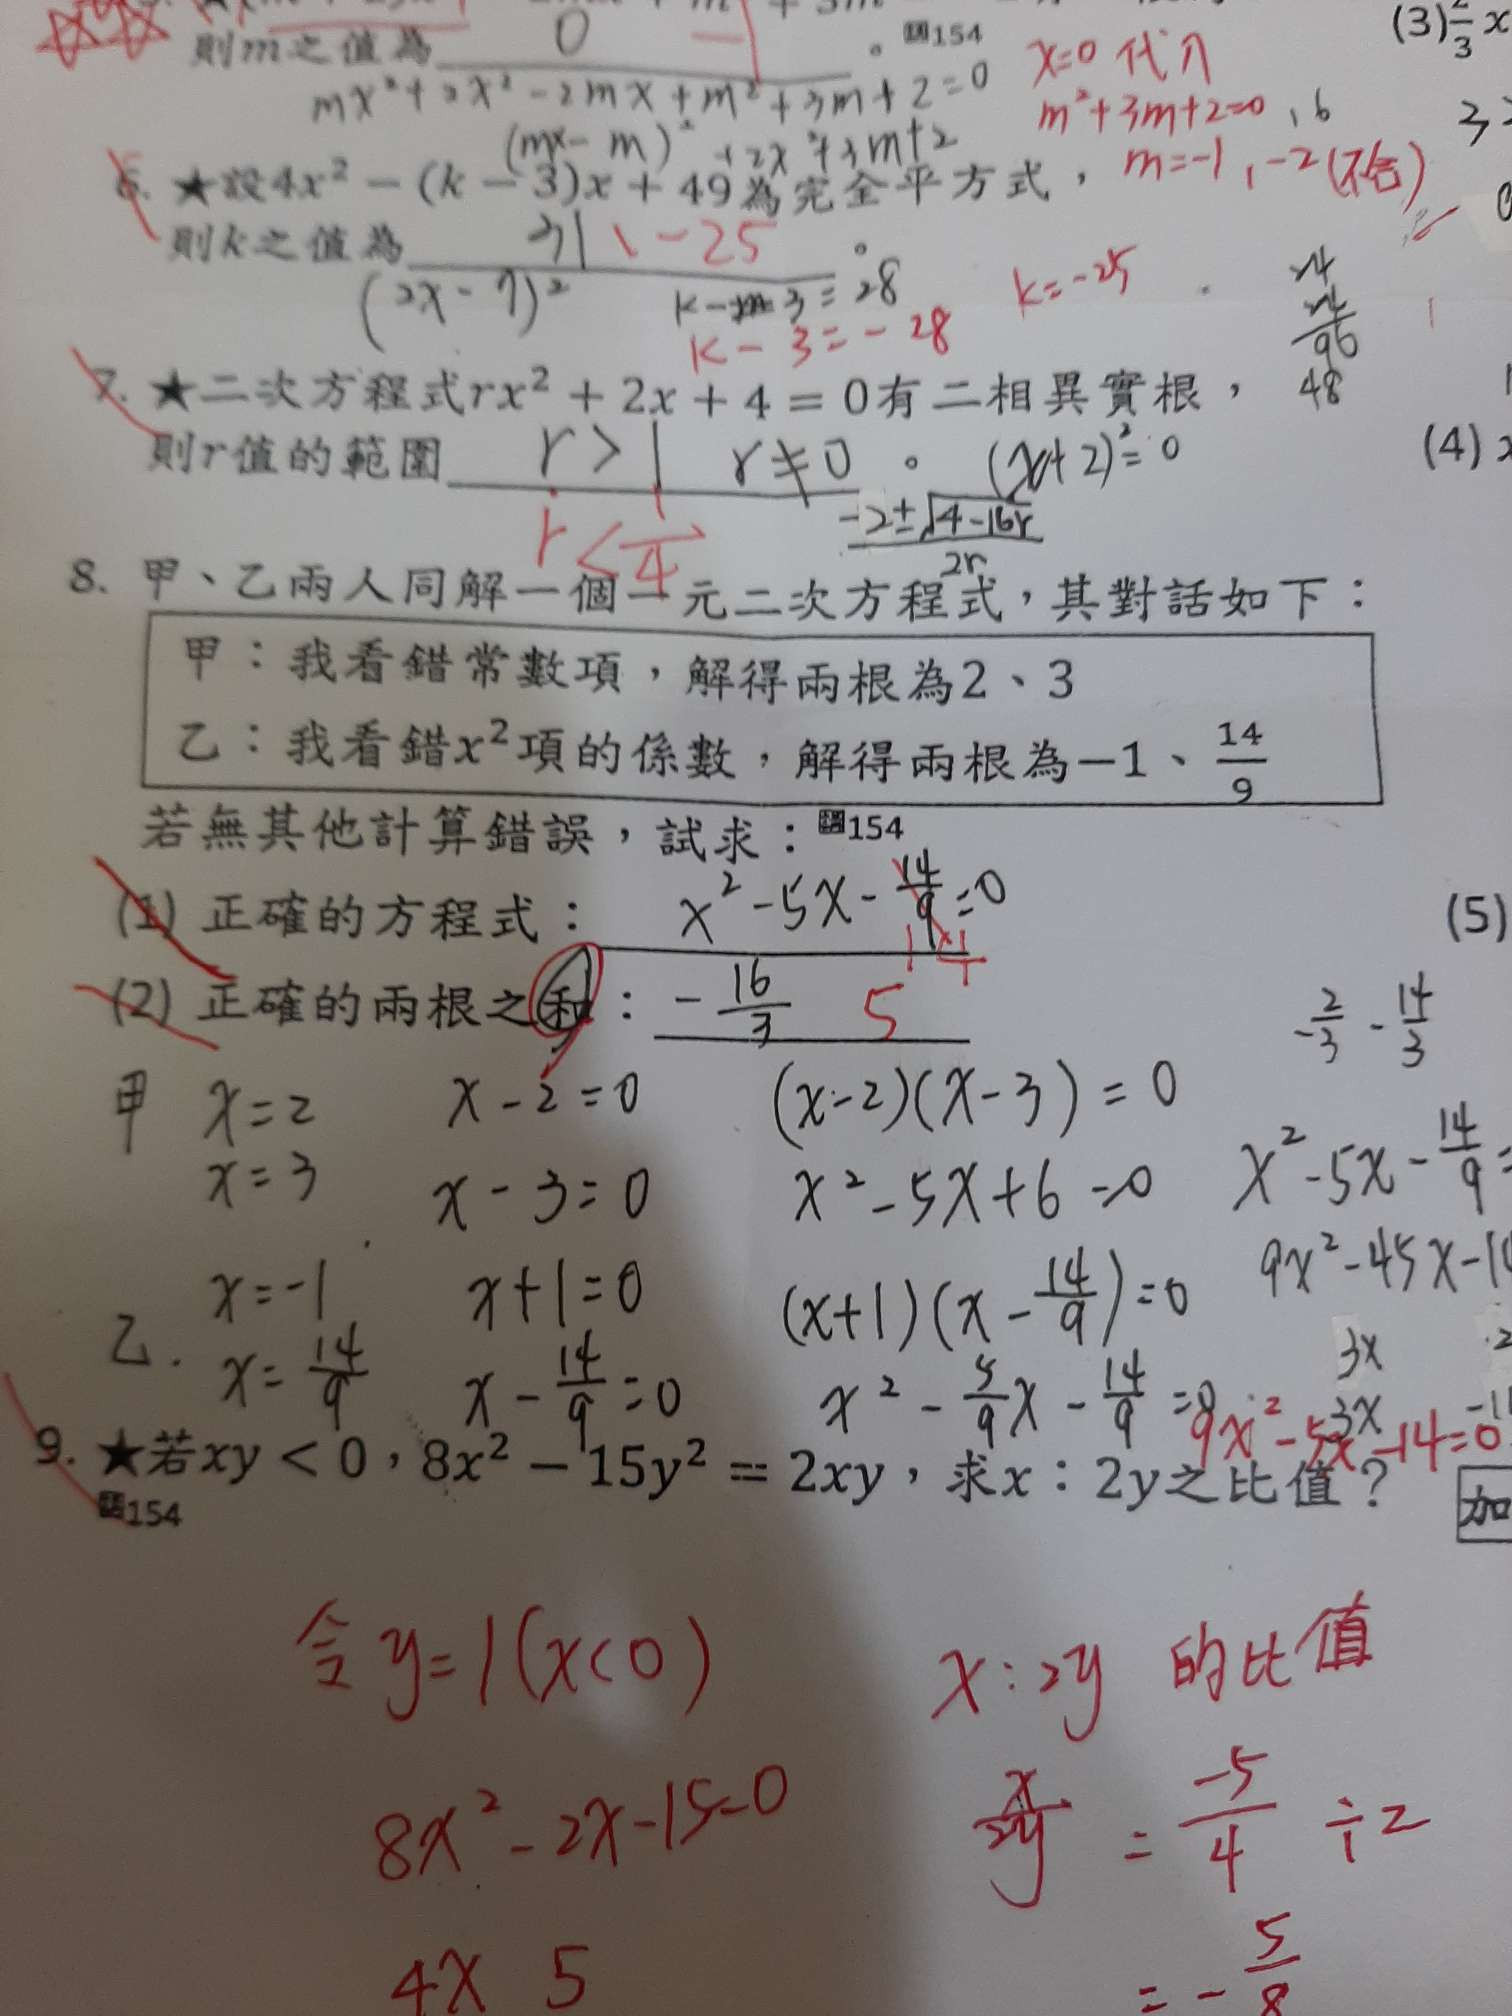 則m之值為 0 -1 。 154
x=0 代入
(3) 2/3 x
mx²+2x²-2mx+m²+3m+2=0
m²+3m+2=0
(mx-m)²+2x²+3m+2
m=-1, -2(不合)
6. ★設4x² − (k − 3)x + 49為完全平方式，
則k之值為 31、-25 。
(2x-7)²
k-3=28
k=-25
k-3=-28
24
96
48
7. ★二次方程式rx² + 2x + 4 = 0有二相異實根，
則r值的範圍 r>1 r≠0 。
(x+2)²=0
(4)
r<1/4
-2±√4-16r / 2r
8. 甲、乙兩人同解一個一元二次方程式，其對話如下：
甲：我看錯常數項，解得兩根為2、3
乙：我看錯x²項的係數，解得兩根為−1、14/9
若無其他計算錯誤，試求： 154
(1) 正確的方程式： x²-5x-14/9=0
(5)
(2) 正確的兩根之和： -16/3 5
-2/3 - 14/3
甲 x=2 x-2=0 (x-2)(x-3)=0
x=3 x-3=0 x²-5x+6=0
x²-5x-14/9=
9x²-45x-14
乙. x=-1 x+1=0 (x+1)(x-14/9)=0
x=14/9 x-14/9=0 x²-5/9x-14/9=0
3x
3x
9x²-5x-14=0
9. ★若xy < 0，8x² − 15y² = 2xy，求x：2y之比值？
154
加
令y=1(x<0)
x:2y 的比值
8x²-2x-15=0
x/2y = -5/4 ÷2
4x 5
= -5/8